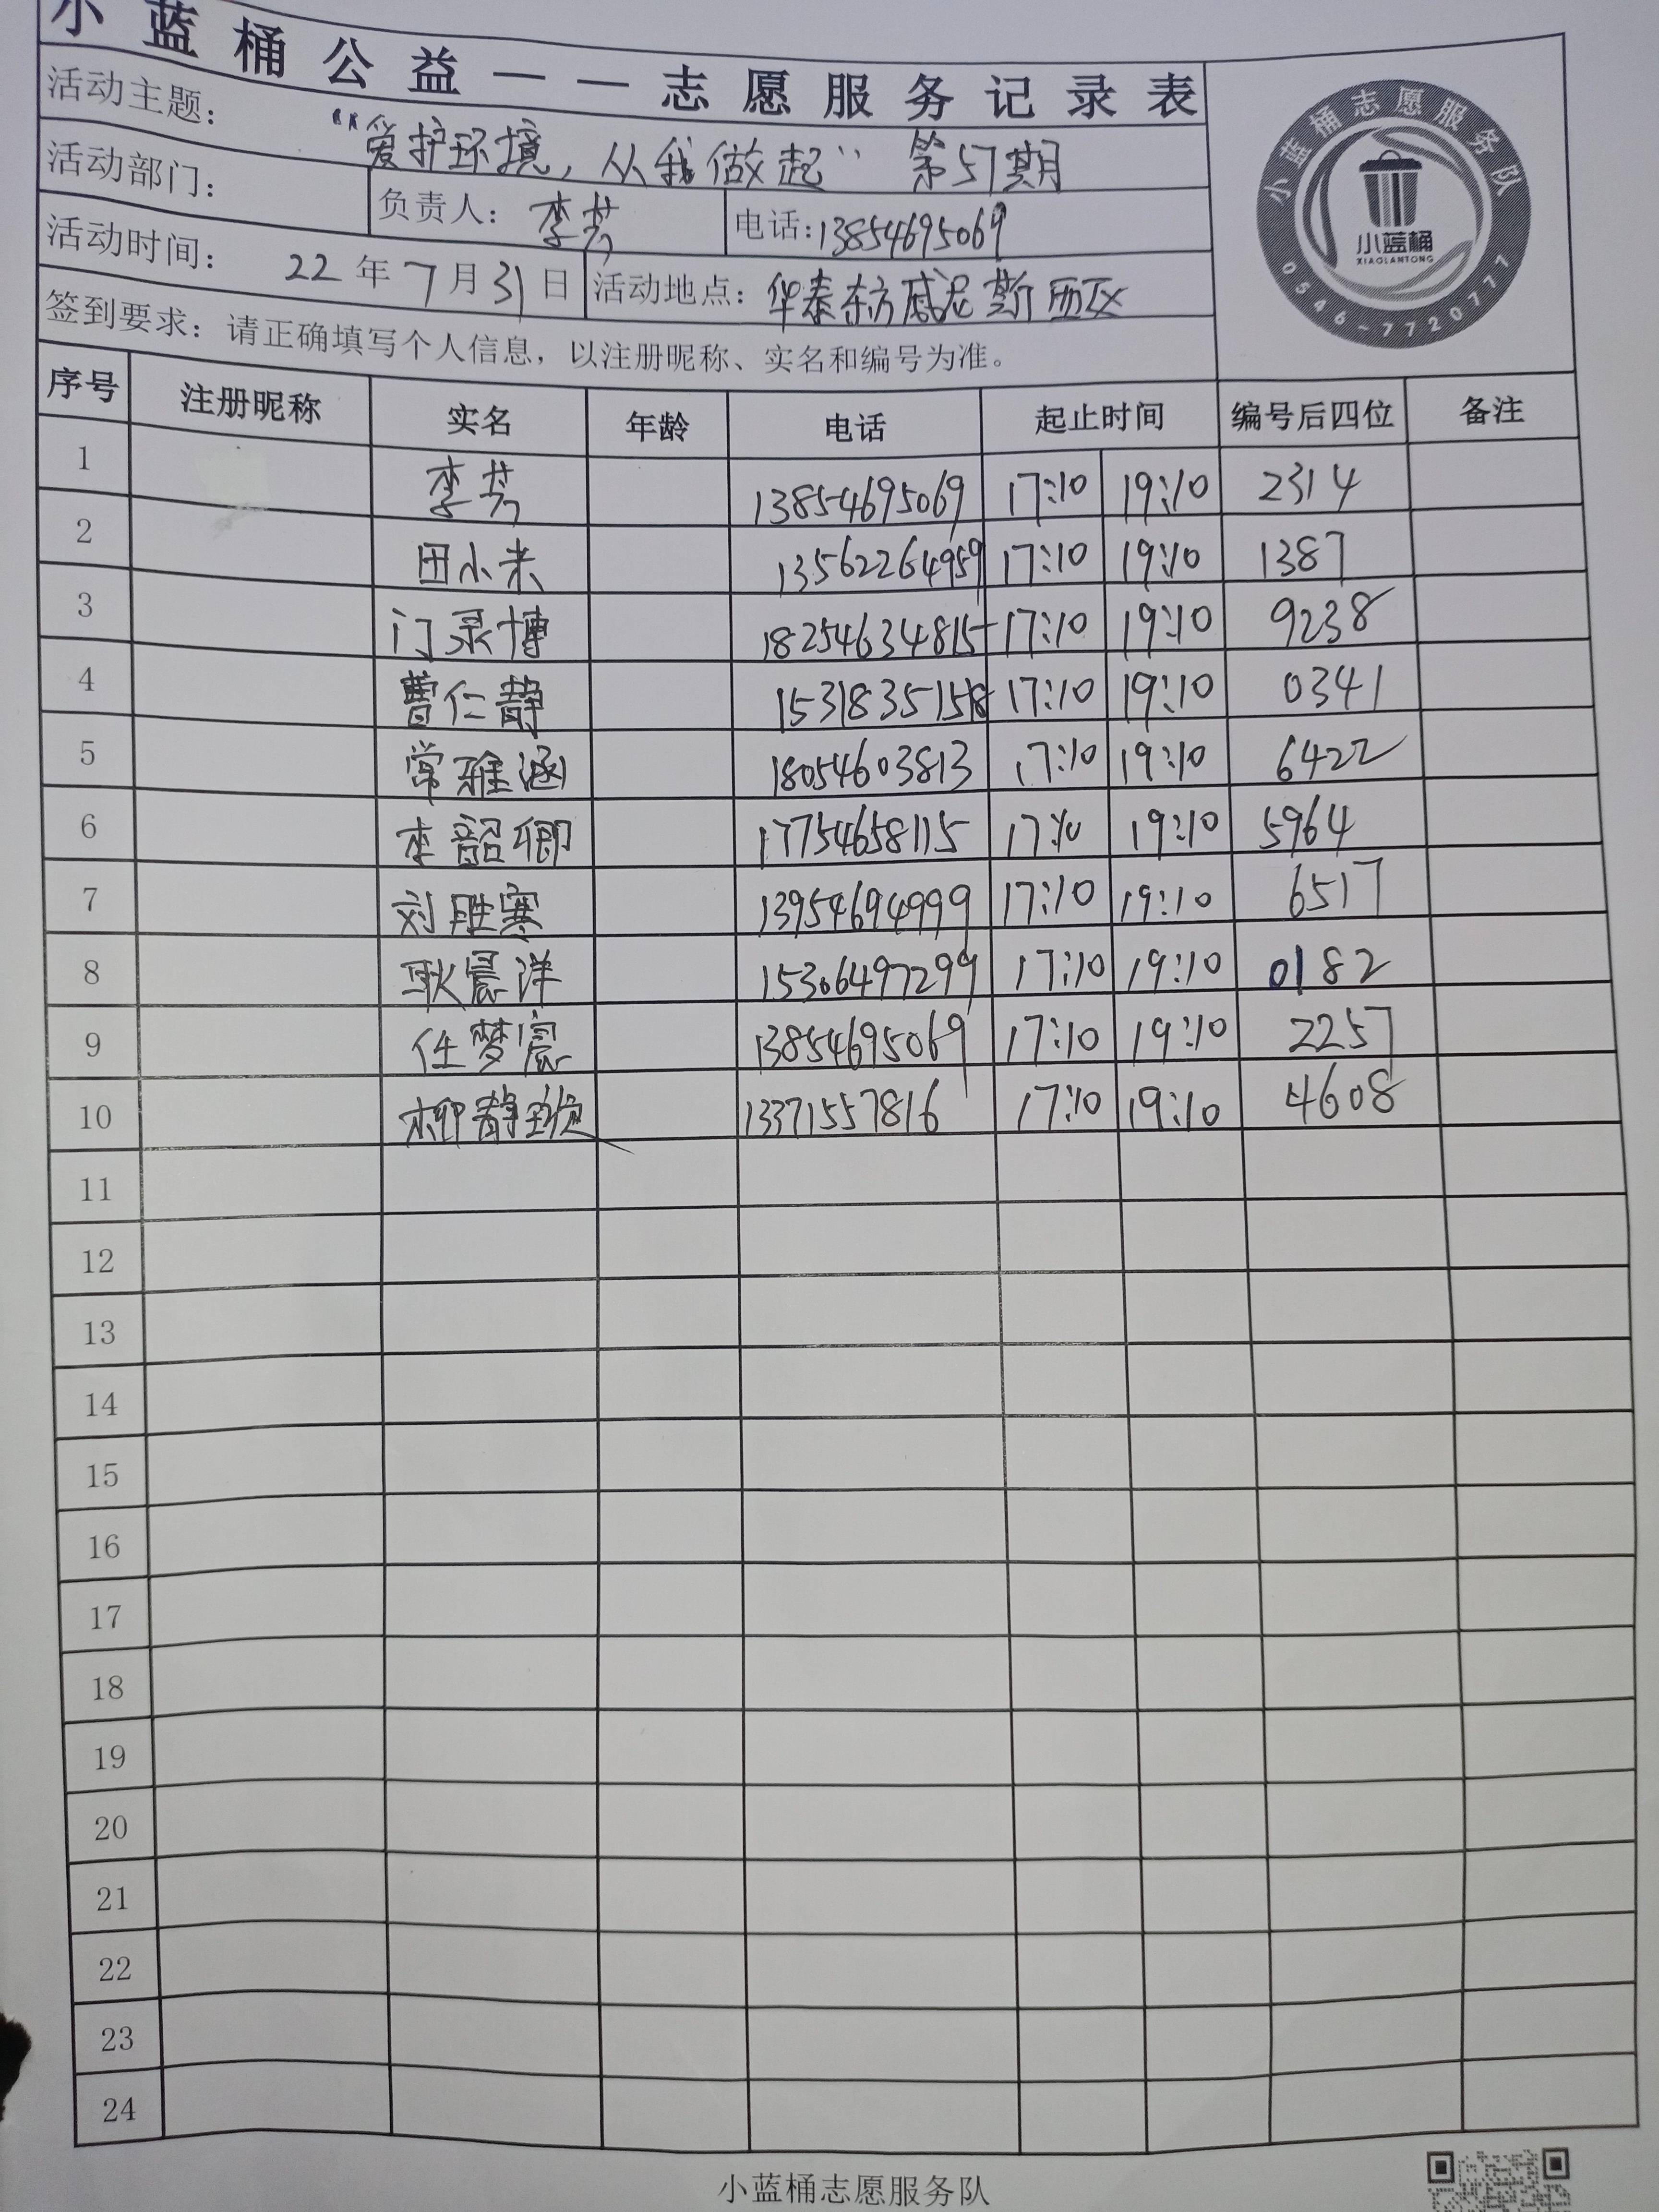 小蓝桶公益——志愿服务记录表
活动主题： “爱护环境，从我做起” 第57期
活动部门： 负责人：李芳 电话：13854695069
活动时间： 22年7月31日 活动地点：华泰东方威尼斯西区
签到要求：请正确填写个人信息，以注册昵称、实名和编号为准。
小蓝桶志愿服务队
小蓝桶
XIAOLANTONG
0546-7720777
序号 注册昵称 实名 年龄 电话 起止时间 编号后四位 备注
1 李芳 13854695069 17:10 19:10 2314
2 田小米 13562264959 17:10 19:10 1387
3 门录博 18254634815 17:10 19:10 9238
4 曹仁静 15318351518 17:10 19:10 0341
5 常雅涵 18054603813 17:10 19:10 6422
6 李韶卿 17754658115 17:10 19:10 5964
7 刘胜寒 13954694999 17:10 19:10 6517
8 耿晨洋 15306497299 17:10 19:10 0182
9 任梦宸 13854695069 17:10 19:10 2257
10 柳静 13371557816 17:10 19:10 4608
11
12
13
14
15
16
17
18
19
20
21
22
23
24
小蓝桶志愿服务队